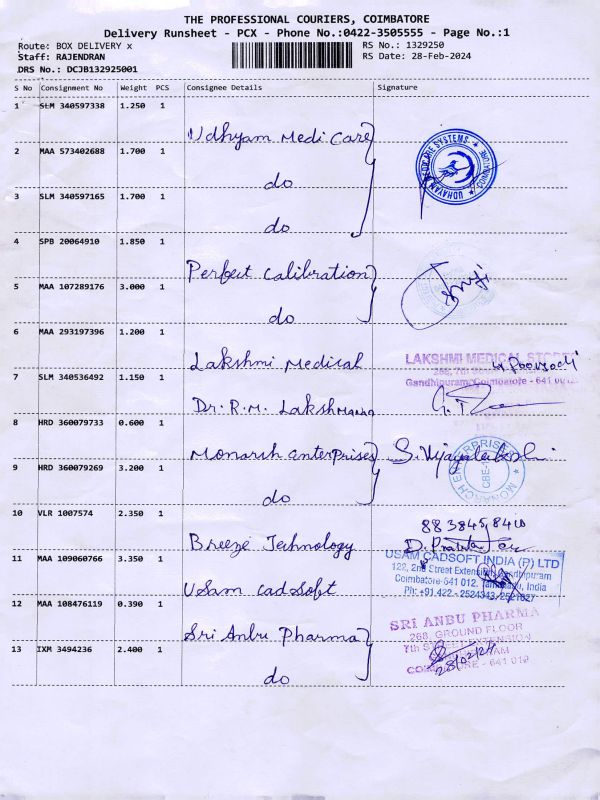 THE PROFESSIONAL COURIERS, COIMBATORE
Delivery Runsheet - PCX - Phone No.:0422-3505555 - Page No.:1
Route: BOX DELIVERY x
RS No.: 1329250
Staff: RAJENDRAN
RS Date: 28-Feb-2024
DRS No.: DCJB132925001
S No Consignment No Weight PCS Consignee Details Signature
1 SLM 340597338 1.250 1 Udhyam Medi Care
2 MAA 573402688 1.700 1 do
UDHAYAM MEDICARE SYSTEMS
3 SLM 340597165 1.700 1 do
4 SPB 20064910 1.850 1 Perfect Calibration
5 MAA 107289176 3.000 1 do
6 MAA 293197396 1.200 1 Lakshmi Medical
LAKSHMI MEDICAL STORES
Gandhipuram, Coimbatore - 641 012
7 SLM 340536492 1.150 1 Dr. R.M. Lakshmanan
8 HRD 360079733 0.600 1 Monarch enterprises S. Vijayalakshmi
MONARCH ENTERPRISES
CBE-1
9 HRD 360079269 3.200 1 do
10 VLR 1007574 2.350 1 Breeze Technology
8838458410
11 MAA 109060766 3.350 1 Usam cadsoft
USAM CADSOFT INDIA (P) LTD
122, 2nd Street Extension, Gandhipuram
Coimbatore-641 012. Tamilnadu, India
Ph: +91-422 - 2524343, 2521827
12 MAA 108476119 0.390 1 Sri Anbu Pharma
SRI ANBU PHARMA
268, GROUND FLOOR
7th STREET EXTENSION
COIMBATORE - 641 012
28/02/24
13 IXM 3494236 2.400 1 do